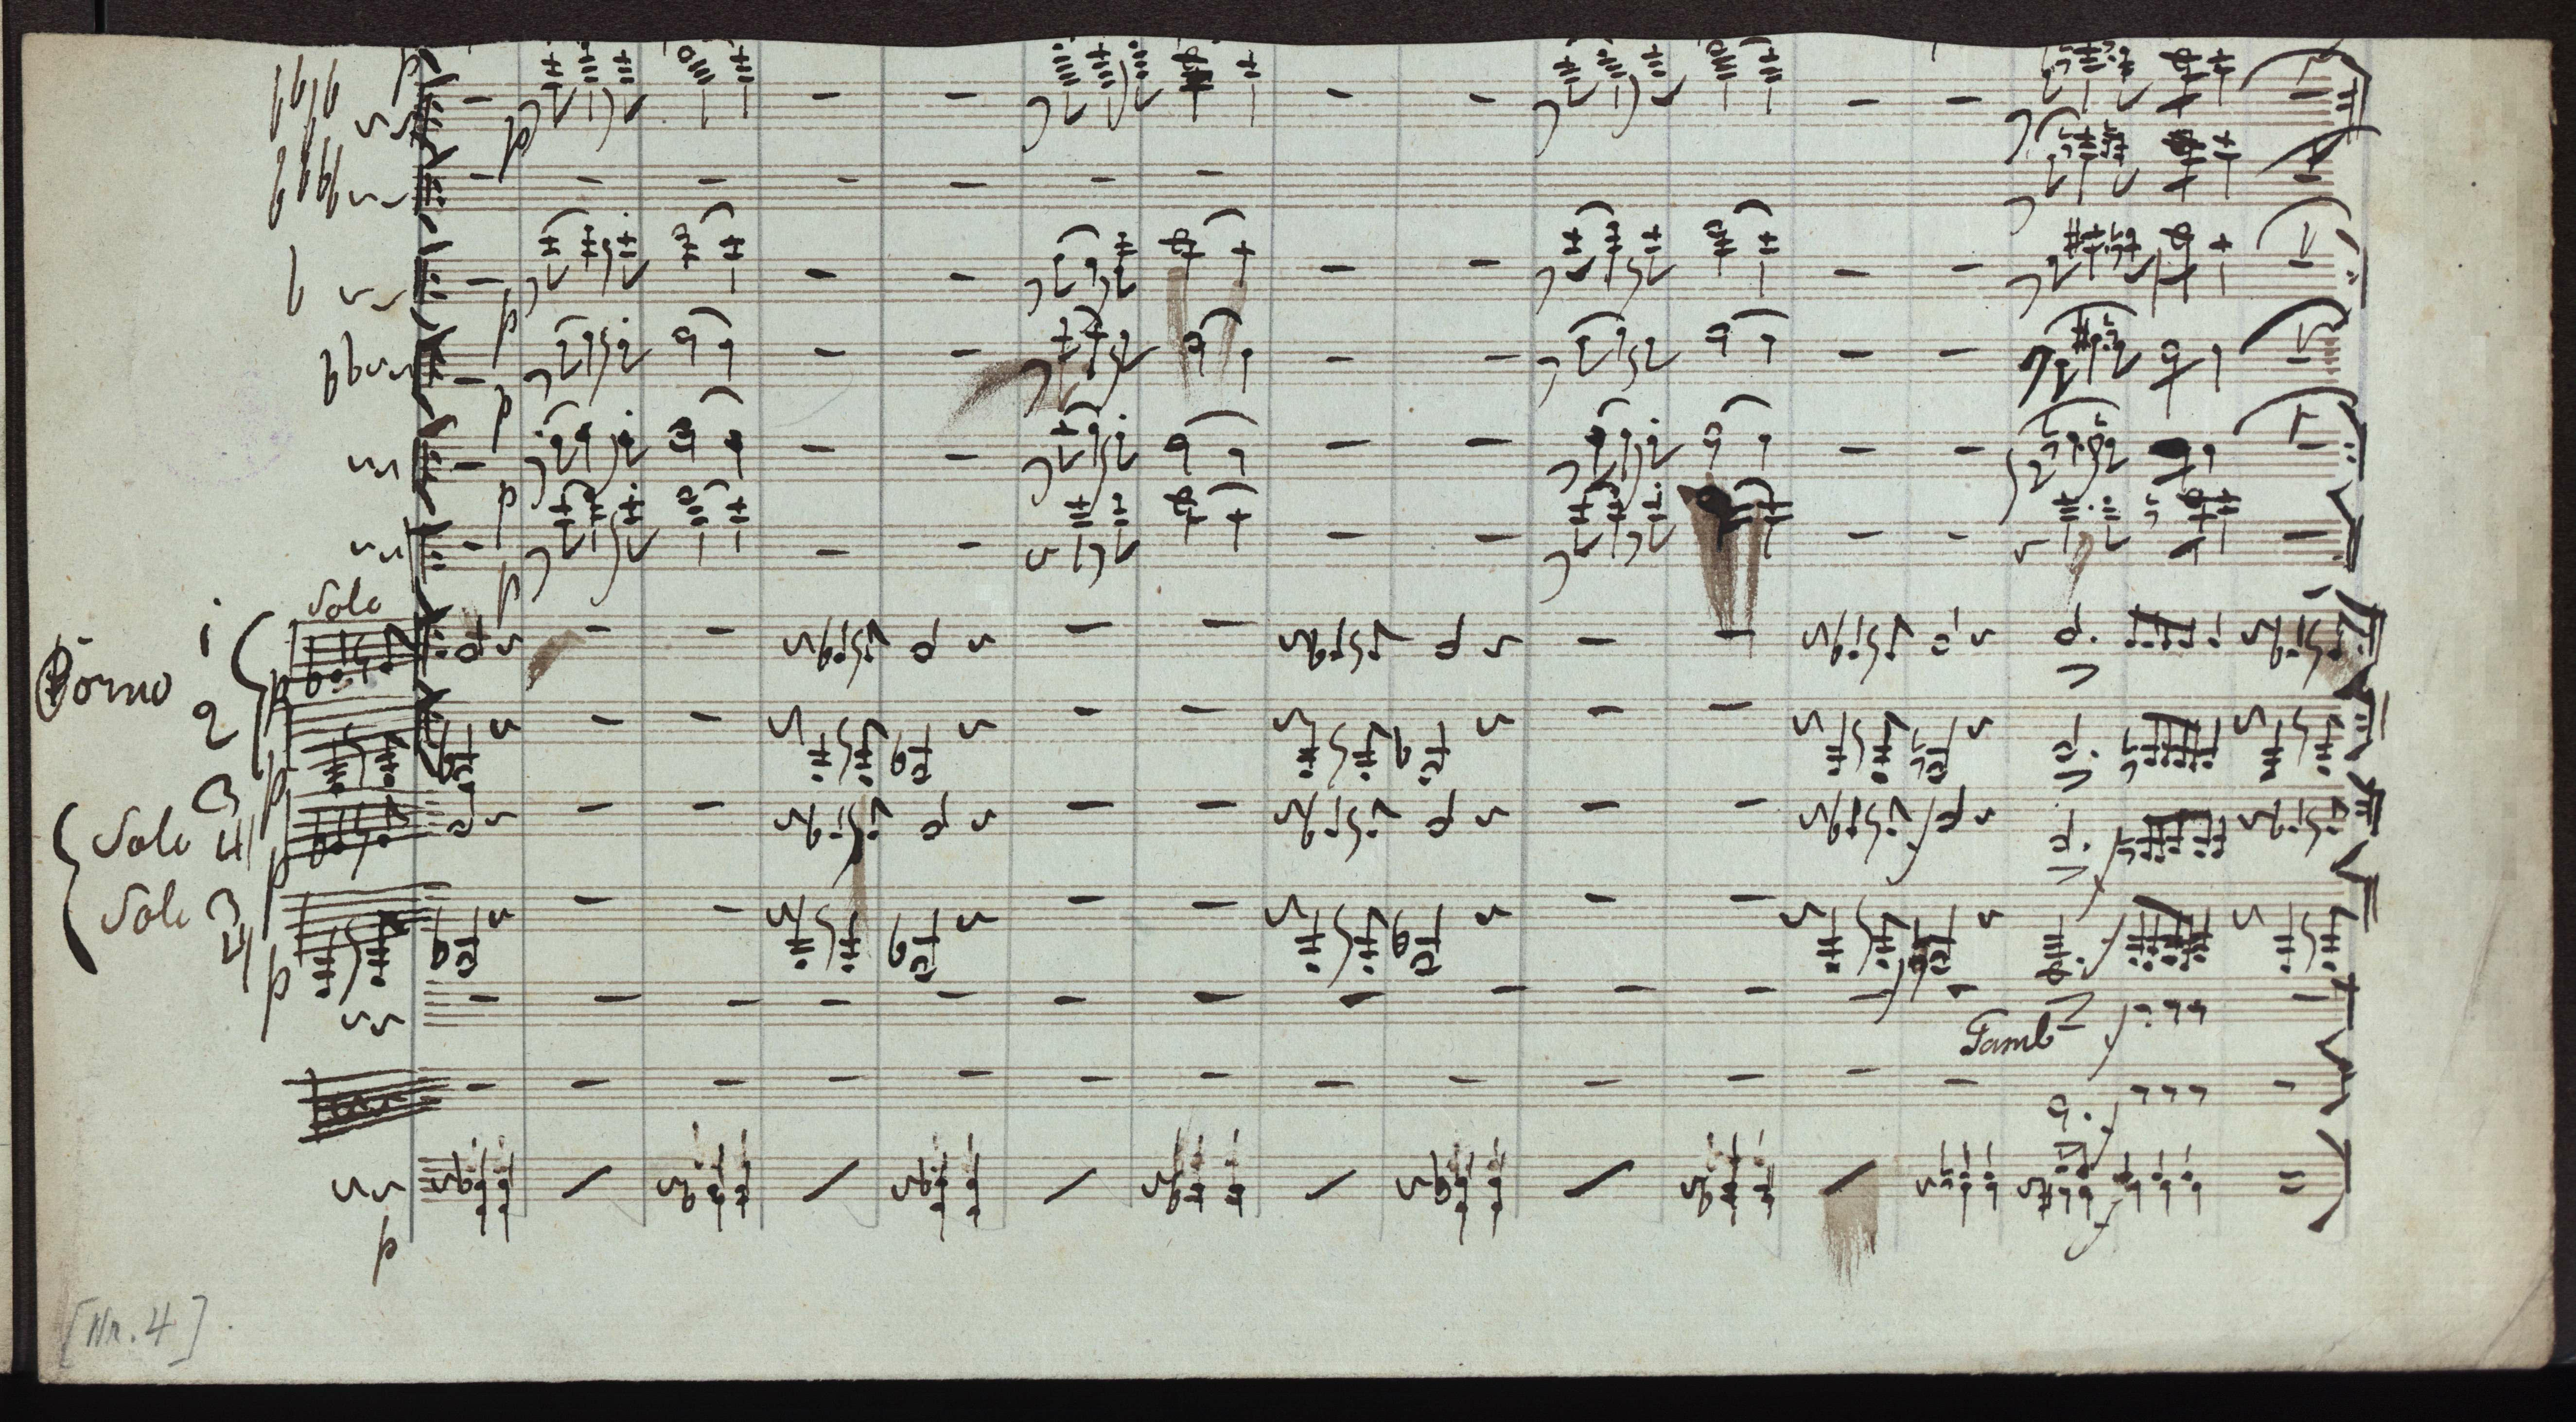 Solo
Corno 1
2
Solo 3
4
Solo 3
4
Tamb
[Nr. 4]